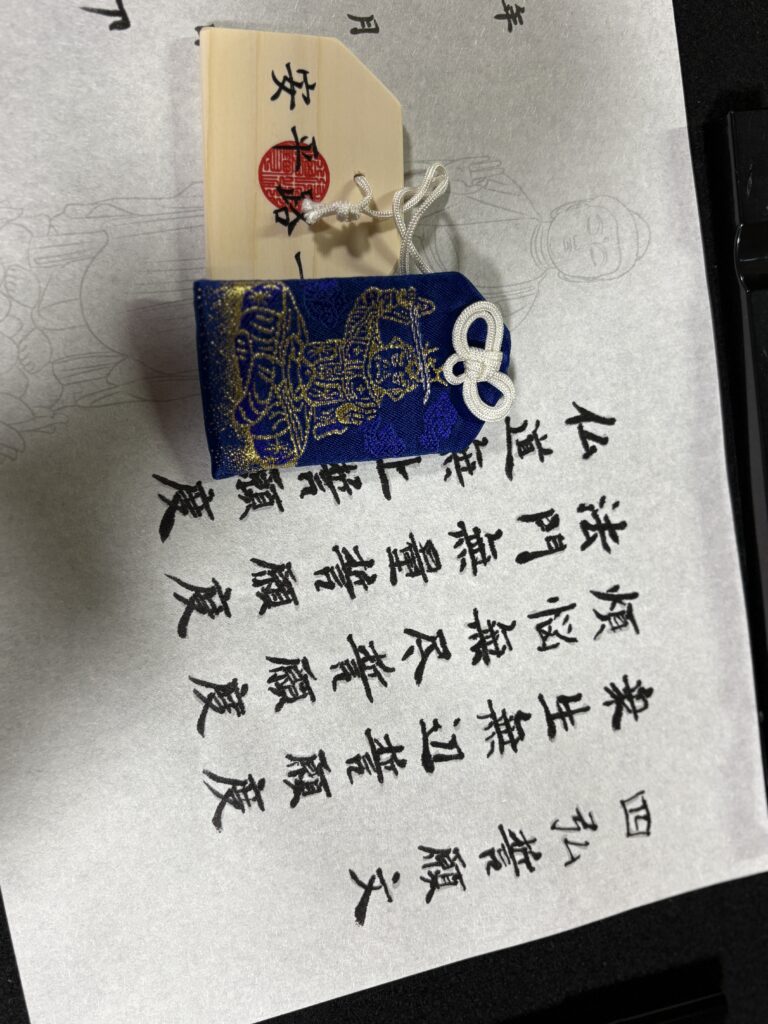 四弘誓願文
衆生無辺誓願度
煩悩無尽誓願度
法門無量誓願度
仏道無上誓願度
一路平安
年月